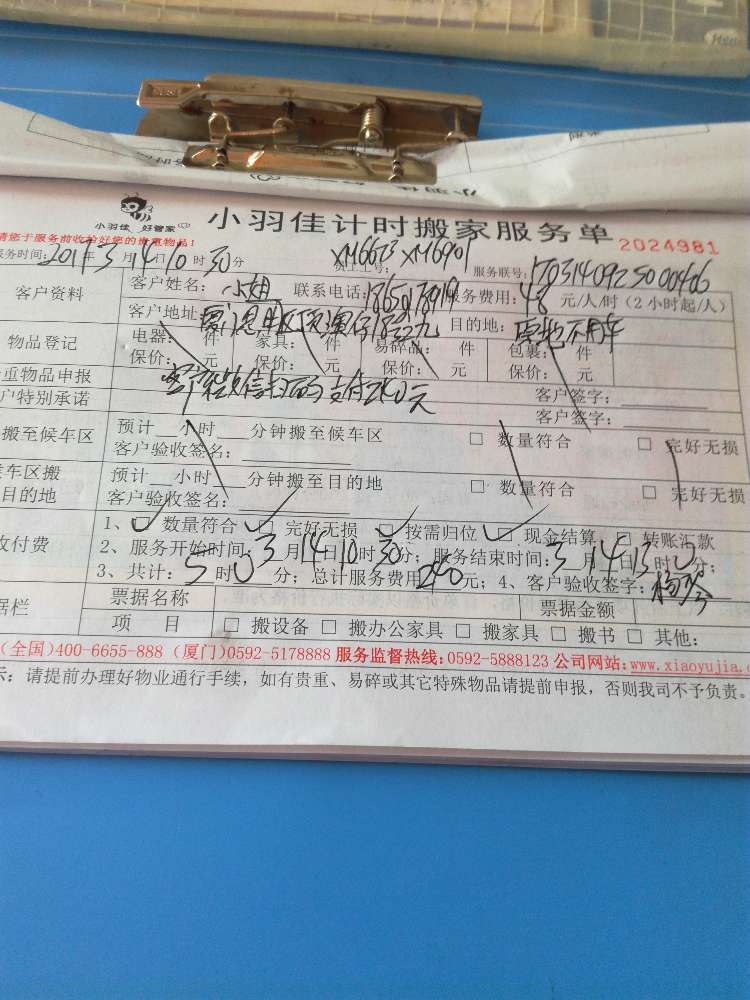 小羽佳 好管家
小羽佳计时搬家服务单
2024981
请您于服务前收拾好您的贵重物品!
服务时间: 2017年 3月 14日 10时 30分 员工工号: XM6673 XM6901 服务联号: 170314092500046
客户资料
客户姓名: 小姐 联系电话: 服务费用: 48 元/人/时 (2小时起/人)
客户地址: 目的地: 原地不用车
物品登记
电器: 件 家具: 件 易碎品: 件 包裹: 件
保价: 元 保价: 元 保价: 元 保价: 元
重物品申报 客户签字:
户特别承诺 客户签字:
客户来微信扫码支付240元
搬至候车区
预计 小时 分钟搬至候车区 □ 数量符合 □ 完好无损
客户验收签名:
车区搬
目的地
预计 小时 分钟搬至目的地 □ 数量符合 □ 完好无损
客户验收签名:
收付费
1、□ 数量符合 □ 完好无损 □ 按需归位 □ 现金结算 □ 转账汇款
2、服务开始时间: 3月 14日 10时 30分; 服务结束时间: 3月 14日 13时 0分;
3、共计: 5时 0分; 总计服务费用 240 元; 4、客户验收签字:
据栏
票据名称 票据金额
项 目 □ 搬设备 □ 搬办公家具 □ 搬家具 □ 搬书 □ 其他:
(全国)400-6655-888 (厦门)0592-5178888 服务监督热线:0592-5888123 公司网站:www.xiaoyujia.c
示: 请提前办理好物业通行手续, 如有贵重、易碎或其它特殊物品请提前申报, 否则我司不予负责。